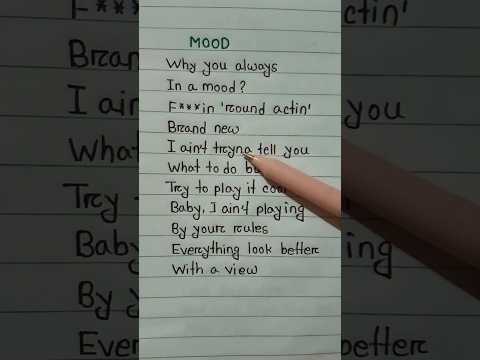 MOOD
Why you always
In a mood?
F***in 'round actin'
Brand new
I ain't tryna tell you
What to do
Try to play it
Baby, I ain't playing
By your rules
Everything look better
With a view